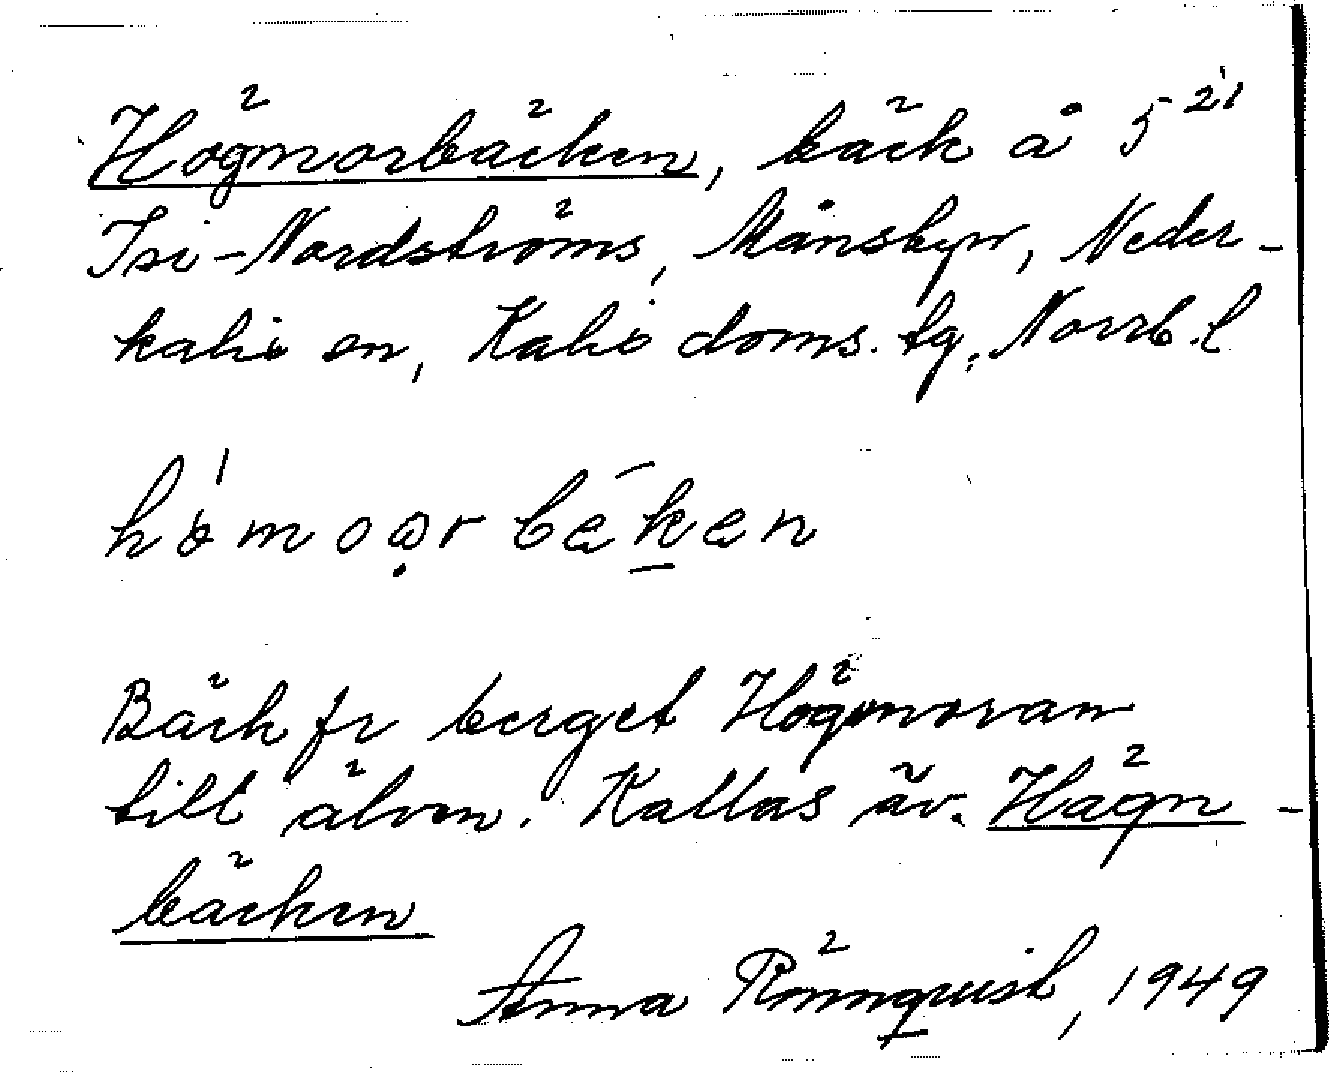 Högmorbäcken, bäck å 5 21
Isr-Nordströms, Månsbyn, Neder-
kalix sn, Kalix doms. tg, Norrb. l
hömoorbäken
Bäck fr berget Högmoran
till älven. Kallas äv. Hägn-
bäcken
Anna Rönnquist, 1949